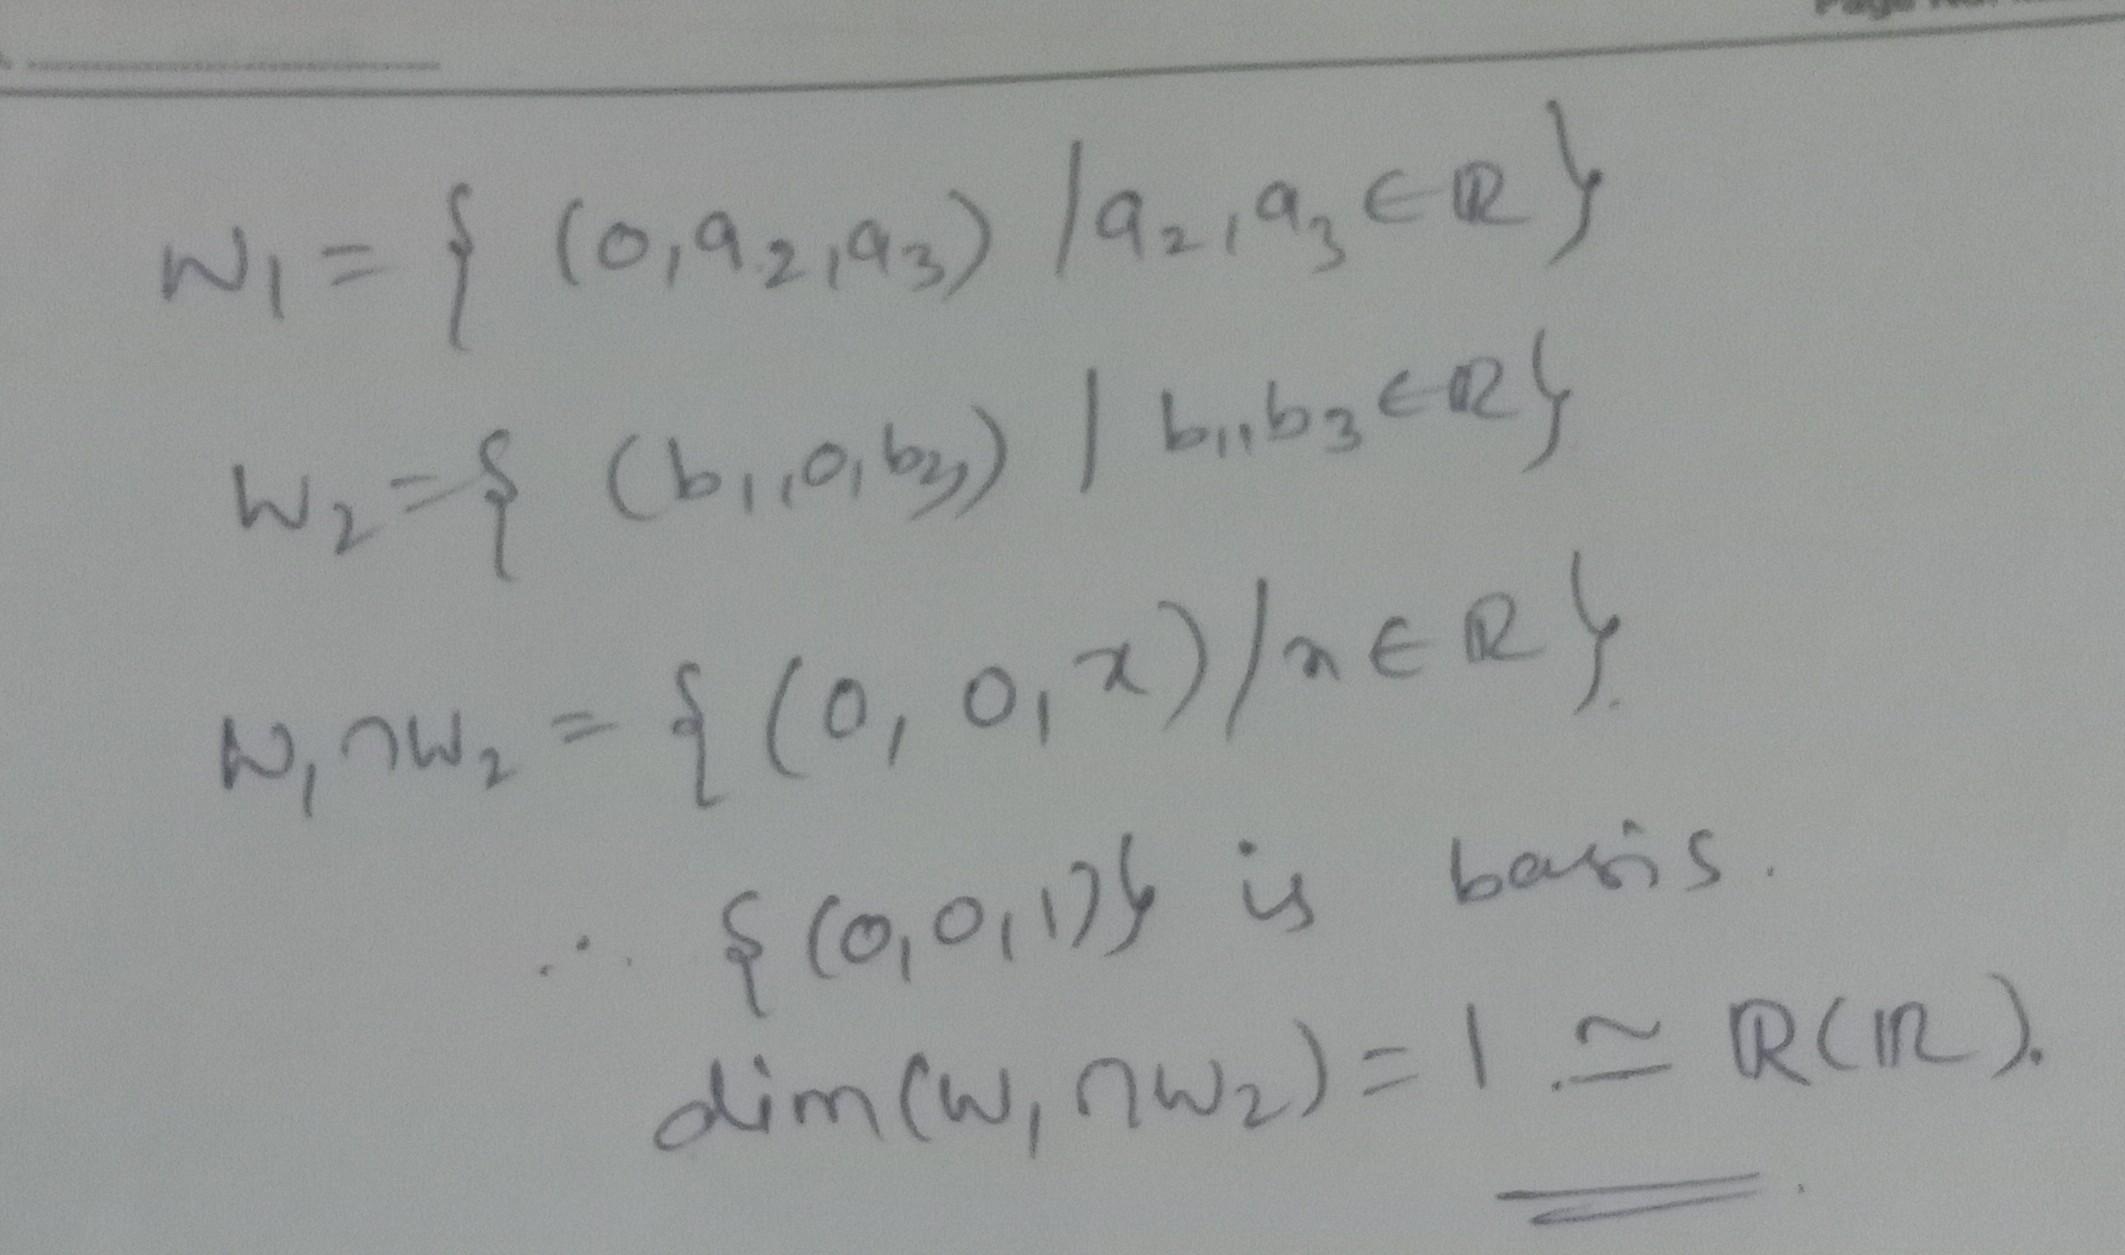 Page No.
W₁ = { (0, a₂, a₃) / a₂, a₃ ∈ ℝ }
W₂ = { (b₁, 0, b₃) | b₁, b₃ ∈ ℝ }
W₁ ∩ W₂ = { (0, 0, x) / x ∈ ℝ }.
∴ { (0, 0, 1) } is basis.
dim (W₁ ∩ W₂) = 1 ≃ ℝ(ℝ).